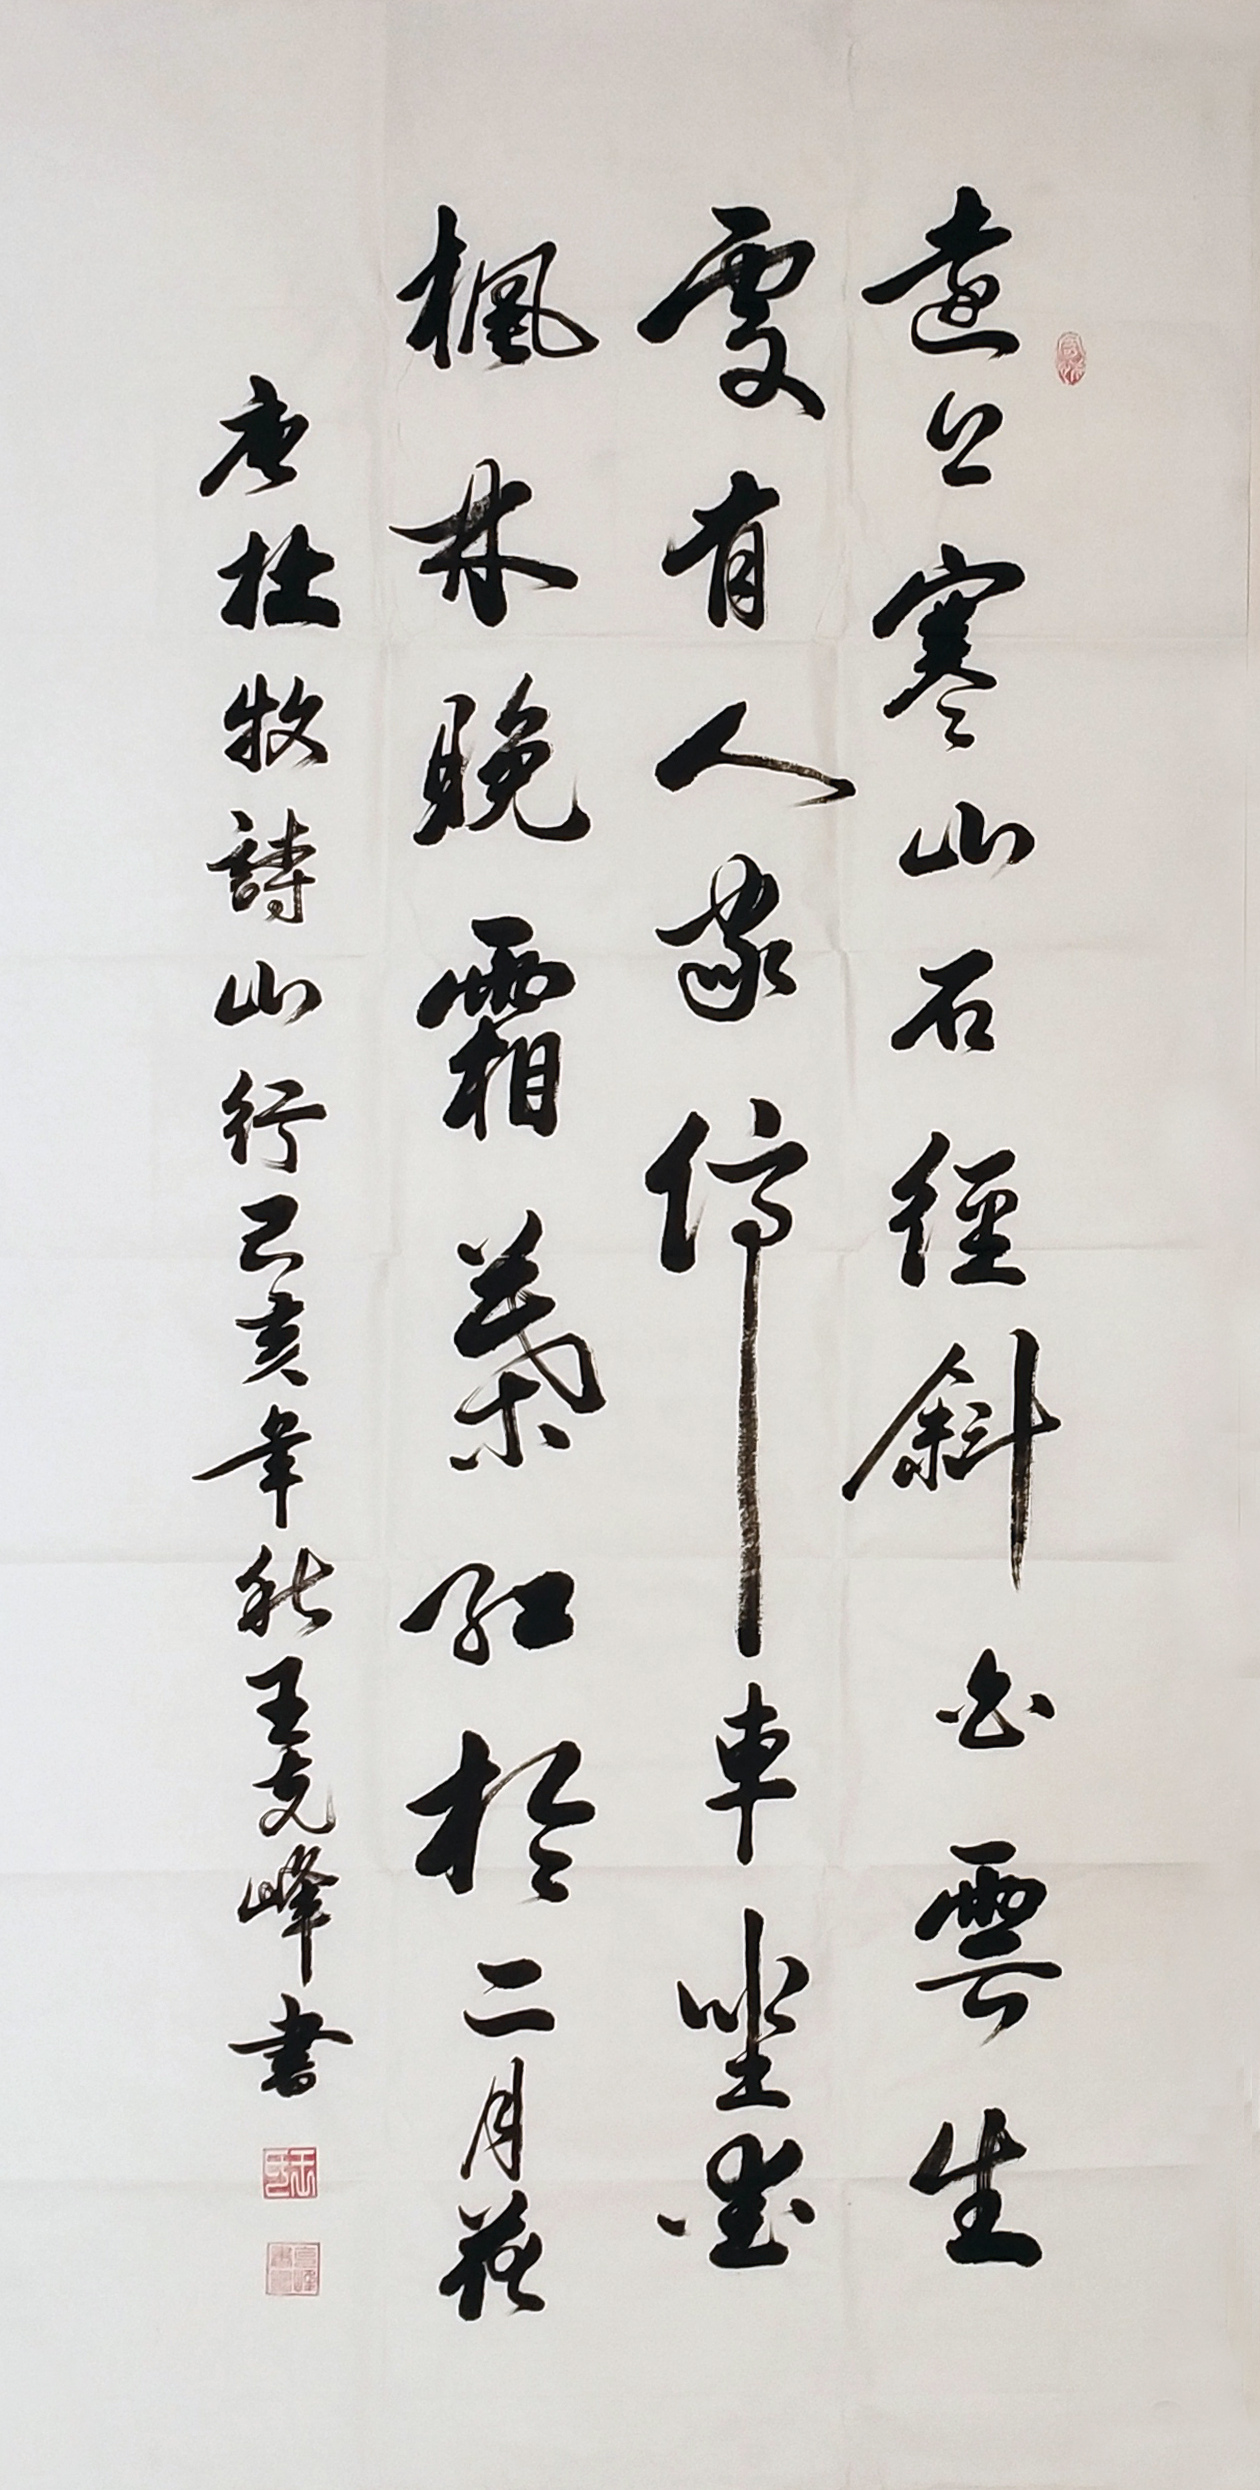 遠上寒山石徑斜白雲生
處有人家停車坐愛
楓林晚霜葉紅於二月花
唐杜牧詩山行己亥年秋王克峰書